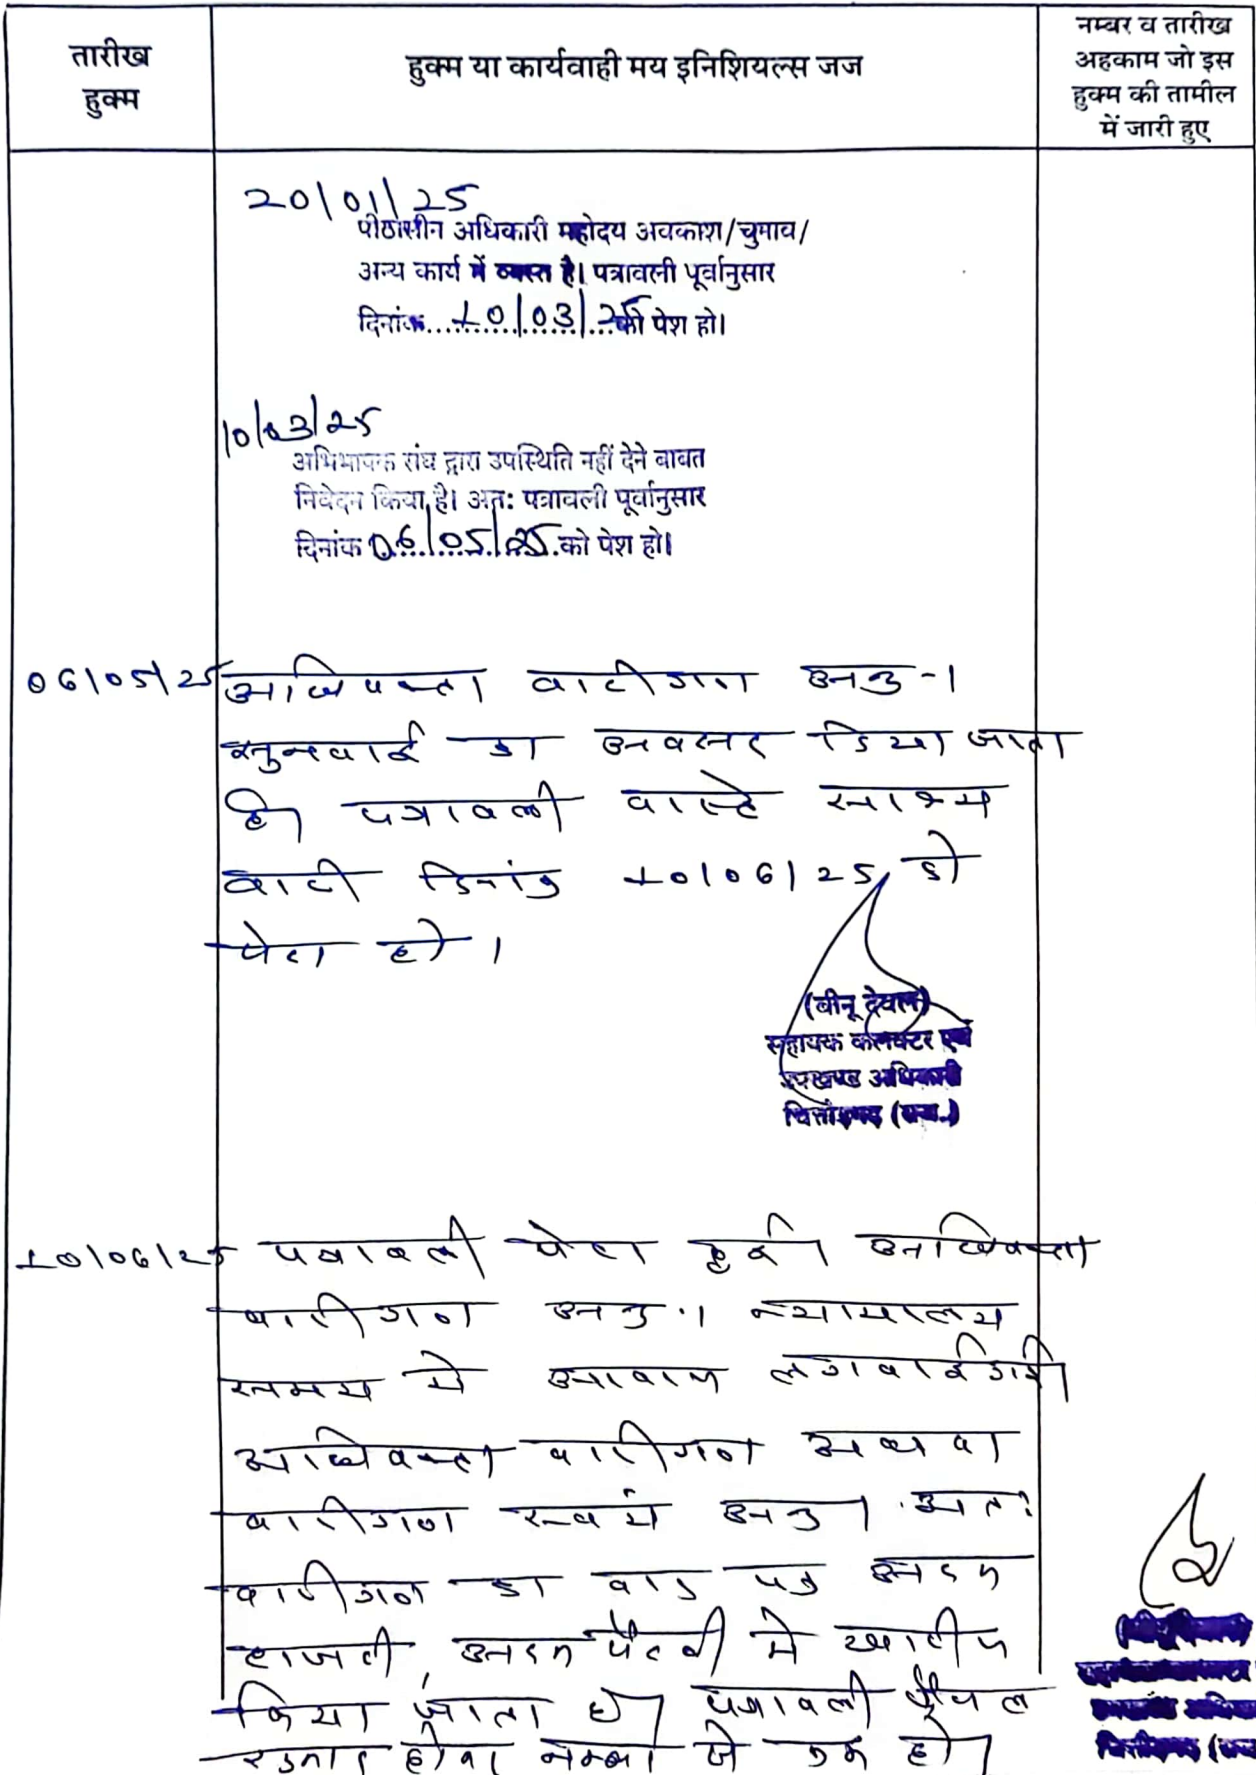 तारीख
हुक्म
हुक्म या कार्यवाही मय इनिशियल्स जज
नम्बर व तारीख
अहकाम जो इस
हुक्म की तामील
में जारी हुए
20/01/25
पीठासीन अधिकारी महोदय अवकाश/चुनाव/
अन्य कार्य में व्यस्त है। पत्रावली पूर्वानुसार
दिनांक 10/03/25 को पेश हो।
10/03/25
अभिभाषक संघ द्वारा उपस्थिति नहीं देने बाबत
निवेदन किया है। अतः पत्रावली पूर्वानुसार
दिनांक 06/05/25 को पेश हो।
06/05/25 अधिवक्ता वादीगण अनु.।
सुनवाई का अवसर दिया जाता
है। पत्रावली वास्ते साक्ष्य
वादी दिनांक 10/06/25 को
पेश हो।
(बीनू देवल)
सहायक कलक्टर एवं
उपखण्ड अधिकारी
चित्तौड़गढ़ (राज.)
10/06/25 पत्रावली पेश हुई। अधिवक्ता
वादीगण अनु.। न्यायालय
समय में आवाज लगवाई गई।
अधिवक्ता वादीगण अथवा
वादीगण स्वयं अनु। अतः
वादीगण का वाद पत्र अदम
हाजरी, अदम पैरवी में खारीज
किया जाता है। पत्रावली फैसल
शुमार होकर नम्बर से कम हो।
चित्तौड़गढ़